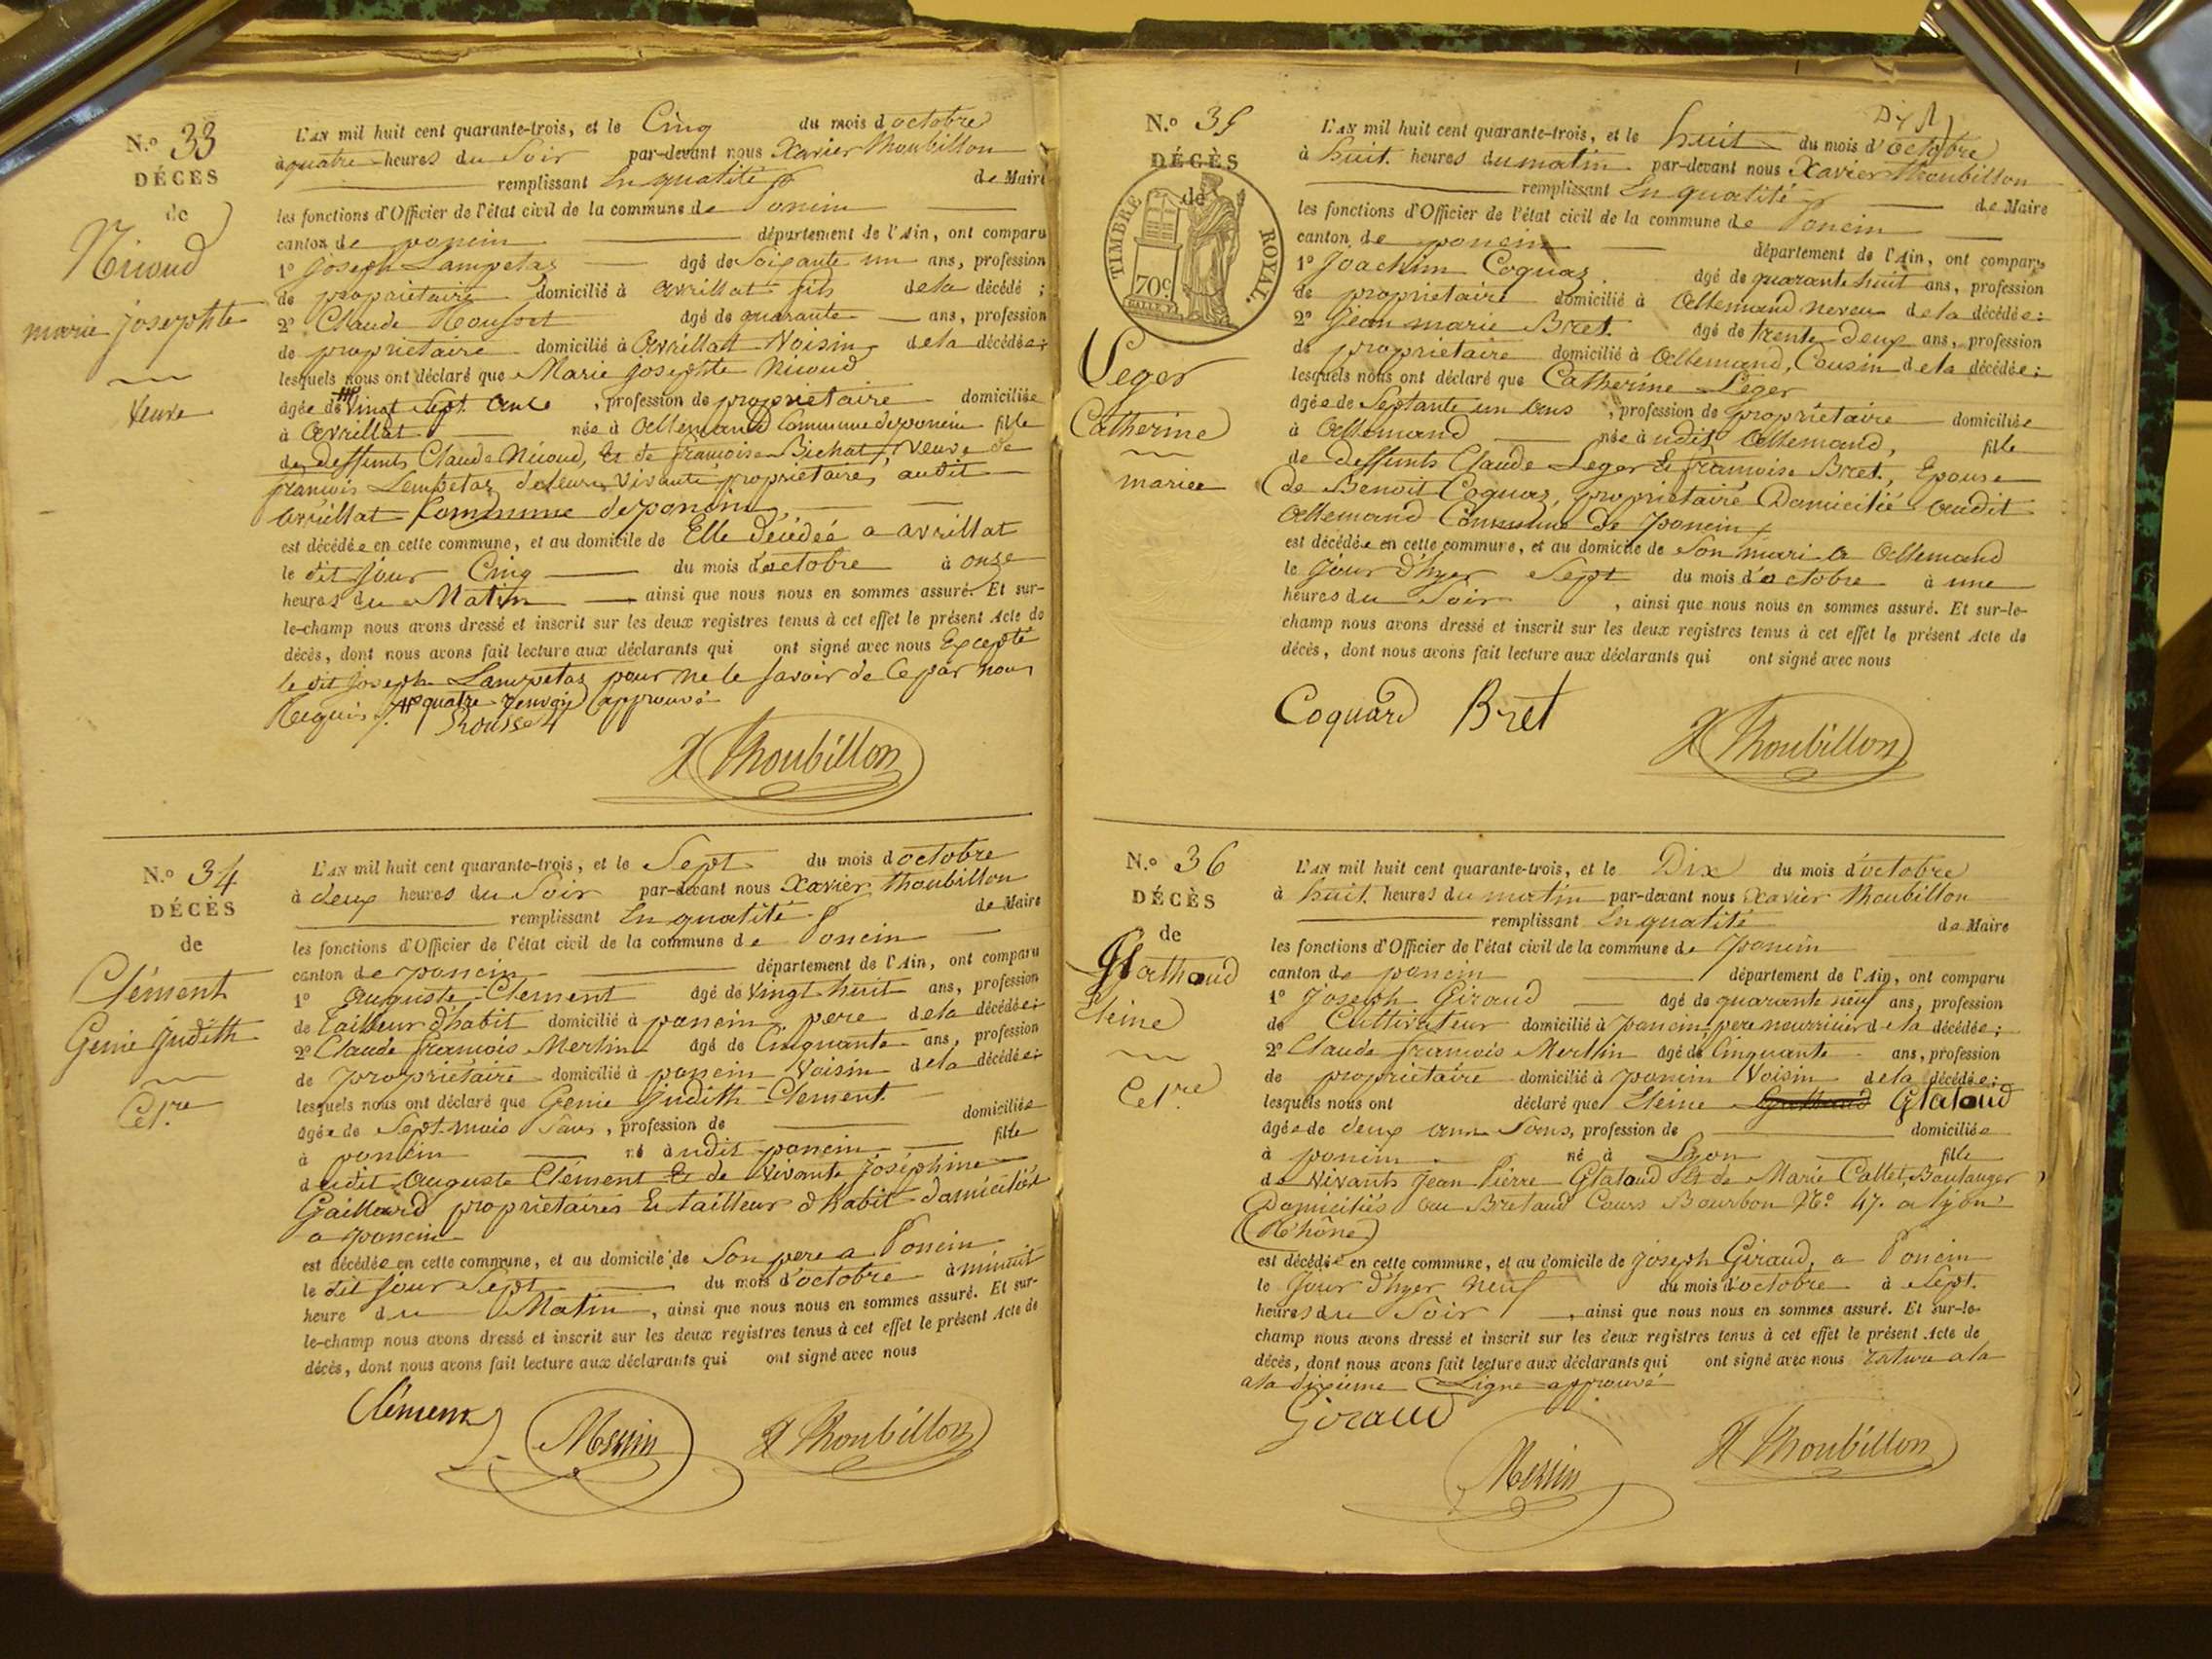 N.° 33
DÉCÈS
de
Nicoud
marie josephte
Veuve
L'AN mil huit cent quarante-trois, et le Cinq du mois d'octobre
à quatre heures du Soir par-devant nous Xavier Thoubillon
remplissant En qualité de Maire
les fonctions d'Officier de l'état civil de la commune de Poncin
canton de poncin département de l'Ain, ont comparu
1° joseph Lampetaz âgé de Soixante un ans, profession
de proprietaire domicilié à avrillat fils de la décédé ;
2° Claude âgé de quarante ans, profession
de proprietaire domicilié à Avrillat Voisin de la décédée ;
lesquels nous ont déclaré que Marie josephte Nicoud
âgée de Vingt Sept ans , profession de proprietaire domiciliée
à Avrillat née à Allemand Commune de poncin fille
des deffunts Claude Nicoud, Et de francoise Bichat, veuve de
francois Lempetaz de leurs vivants proprietaires audit
avrillat Commune de poncin,
est décédée en cette commune, et au domicile de Elle décédée a avrillat
le dit jour Cinq du mois d'octobre à onze
heures du Matin ainsi que nous nous en sommes assuré. Et sur-
le-champ nous avons dressé et inscrit sur les deux registres tenus à cet effet le présent Acte de
décès, dont nous avons fait lecture aux déclarants qui ont signé avec nous Excepté
le dit joseph Lampetaz pour ne le savoir de Ce par nous
Requis quatre renvoi approuvé
X Thoubillon
N.° 34
DÉCÈS
de
Clément
Genie judith
Cel.re
L'AN mil huit cent quarante-trois, et le Sept du mois d'octobre
à deux heures du Soir par-devant nous Xavier Thoubillon
remplissant En qualité de Maire
les fonctions d'Officier de l'état civil de la commune de Poncin
canton de poncin département de l'Ain, ont comparu
1° Auguste Clement âgé de Vingt huit ans, profession
de tailleur d'habit domicilié à poncin pere de la décédée ;
2° Claude francois Merlin âgé de Cinquante ans, profession
de proprietaire domicilié à poncin Voisin de la décédée ;
lesquels nous ont déclaré que Genie Judith Clement
âgée de Sept mois Sans , profession de domiciliée
à poncin né audit poncin fille
dudit Auguste Clément Et de vivante joséphine
Gaillard proprietaires Et tailleur d'habit domiciliés
a poncin
est décédée en cette commune, et au domicile de Son pere a Poncin
le dit jour Sept du mois d'octobre à minuit
heure du Matin , ainsi que nous nous en sommes assuré. Et sur-
le-champ nous avons dressé et inscrit sur les deux registres tenus à cet effet le présent Acte de
décès, dont nous avons fait lecture aux déclarants qui ont signé avec nous
Clément Merlin X Thoubillon
N.° 35
DÉCÈS
de
TIMBRE ROYAL.
70c
Leger
Catherine
mariee
L'AN mil huit cent quarante-trois, et le huit du mois d'octobre
à huit heures du matin par-devant nous Xavier Thoubillon
remplissant En qualité de Maire
les fonctions d'Officier de l'état civil de la commune de Poncin
canton de poncin département de l'Ain, ont comparu
1° Joachim Coquaz âgé de quarante huit ans, profession
de proprietaire domicilié à Allemand neveu de la décédée ;
2° Jean marie Bret âgé de trente Deux ans, profession
de proprietaire domicilié à Allemand, Cousin de la décédée ;
lesquels nous ont déclaré que Catherine Leger
âgée de Septante un ans , profession de proprietaire domiciliée
à Allemand née audit Allemand, fille
de deffunts Claude Leger Et francoise Bret, Epouse
de Benoit Coquaz, proprietaire Domicilié audit
Allemand Commune de poncin
est décédée en cette commune, et au domicile de Son mari a Allemand
le jour d'hyer Sept du mois d'octobre à une
heures du Soir , ainsi que nous nous en sommes assuré. Et sur-le-
champ nous avons dressé et inscrit sur les deux registres tenus à cet effet le présent Acte de
décès, dont nous avons fait lecture aux déclarants qui ont signé avec nous
Coquard Bret
X Thoubillon
N.° 36
DÉCÈS
de
Glathaud
Eleine
Cel.re
L'AN mil huit cent quarante-trois, et le Dix du mois d'octobre
à huit heures du matin par-devant nous Xavier Thoubillon
remplissant En qualité de Maire
les fonctions d'Officier de l'état civil de la commune de poncin
canton de poncin département de l'Ain, ont comparu
1° Joseph Giraud âgé de quarante neuf ans, profession
de Cultivateur domicilié à poncin, pere nourricier de la décédée ;
2° Claude francois Merlin âgé de Cinquante ans, profession
de proprietaire domicilié à poncin Voisin de la décédée ;
lesquels nous ont déclaré que Eleine Glataud
âgée de deux ans Sans, profession de domiciliée
à poncin né à Lyon fille
de Vivants Jean Pierre Glataud Et de Marie Callet, Boulanger
Domiciliés au Bretaud Cours Bourbon N.° 47. a lyon
(Rhône)
est décédée en cette commune, et au domicile de joseph Giraud, a Poncin
le Jour d'hyer neuf du mois d'octobre à Sept
heures du Soir , ainsi que nous nous en sommes assuré. Et sur-le-
champ nous avons dressé et inscrit sur les deux registres tenus à cet effet le présent Acte de
décès, dont nous avons fait lecture aux déclarants qui ont signé avec nous rature a la
a la dixieme Ligne approuvé
Giraud
Merlin X Thoubillon